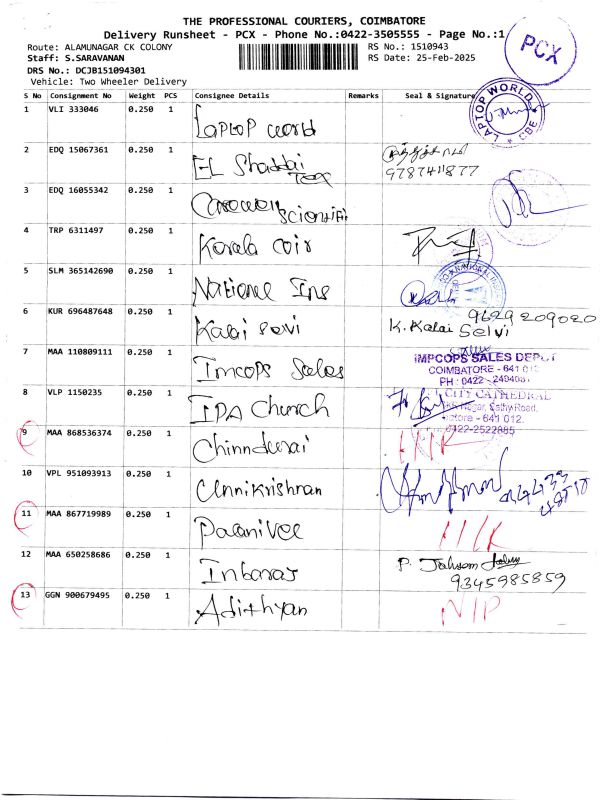 THE PROFESSIONAL COURIERS, COIMBATORE
Delivery Runsheet - PCX - Phone No.:0422-3505555 - Page No.:1
Route: ALAMUNAGAR CK COLONY
RS No.: 1510943
Staff: S.SARAVANAN
RS Date: 25-Feb-2025
DRS No.: DCJB151094301
Vehicle: Two Wheeler Delivery
PCX
S No Consignment No Weight PCS Consignee Details Remarks Seal & Signature
LAPTOP WORLD * CBE *
1 VLI 333046 0.250 1 Laptop world
2 EDQ 15067361 0.250 1 EL Shaddai Tex
9787411877
3 EDQ 16055342 0.250 1 Scientifi
4 TRP 6311497 0.250 1 Kerala coir
5 SLM 365142690 0.250 1 National Ins
NATIONAL
6 KUR 696487648 0.250 1 Kalai selvi K. Kalai Selvi 9629209020
7 MAA 110809111 0.250 1 Imcops Sales
IMPCOPS SALES DEPOT
COIMBATORE - 641 012
PH : 0422 -
8 VLP 1150235 0.250 1 IPA Church
CITY CATHEDRAL
Nagar, Sathy Road,
- 641 012.
0422-2522885
9 MAA 868536374 0.250 1 Chinndurai
10 VPL 951093913 0.250 1 Unnikrishnan
11 MAA 867719989 0.250 1 Palanivel
12 MAA 650258686 0.250 1 Inbaraj P. Jahsom
9345985859
13 GGN 900679495 0.250 1 Adithyan N/P